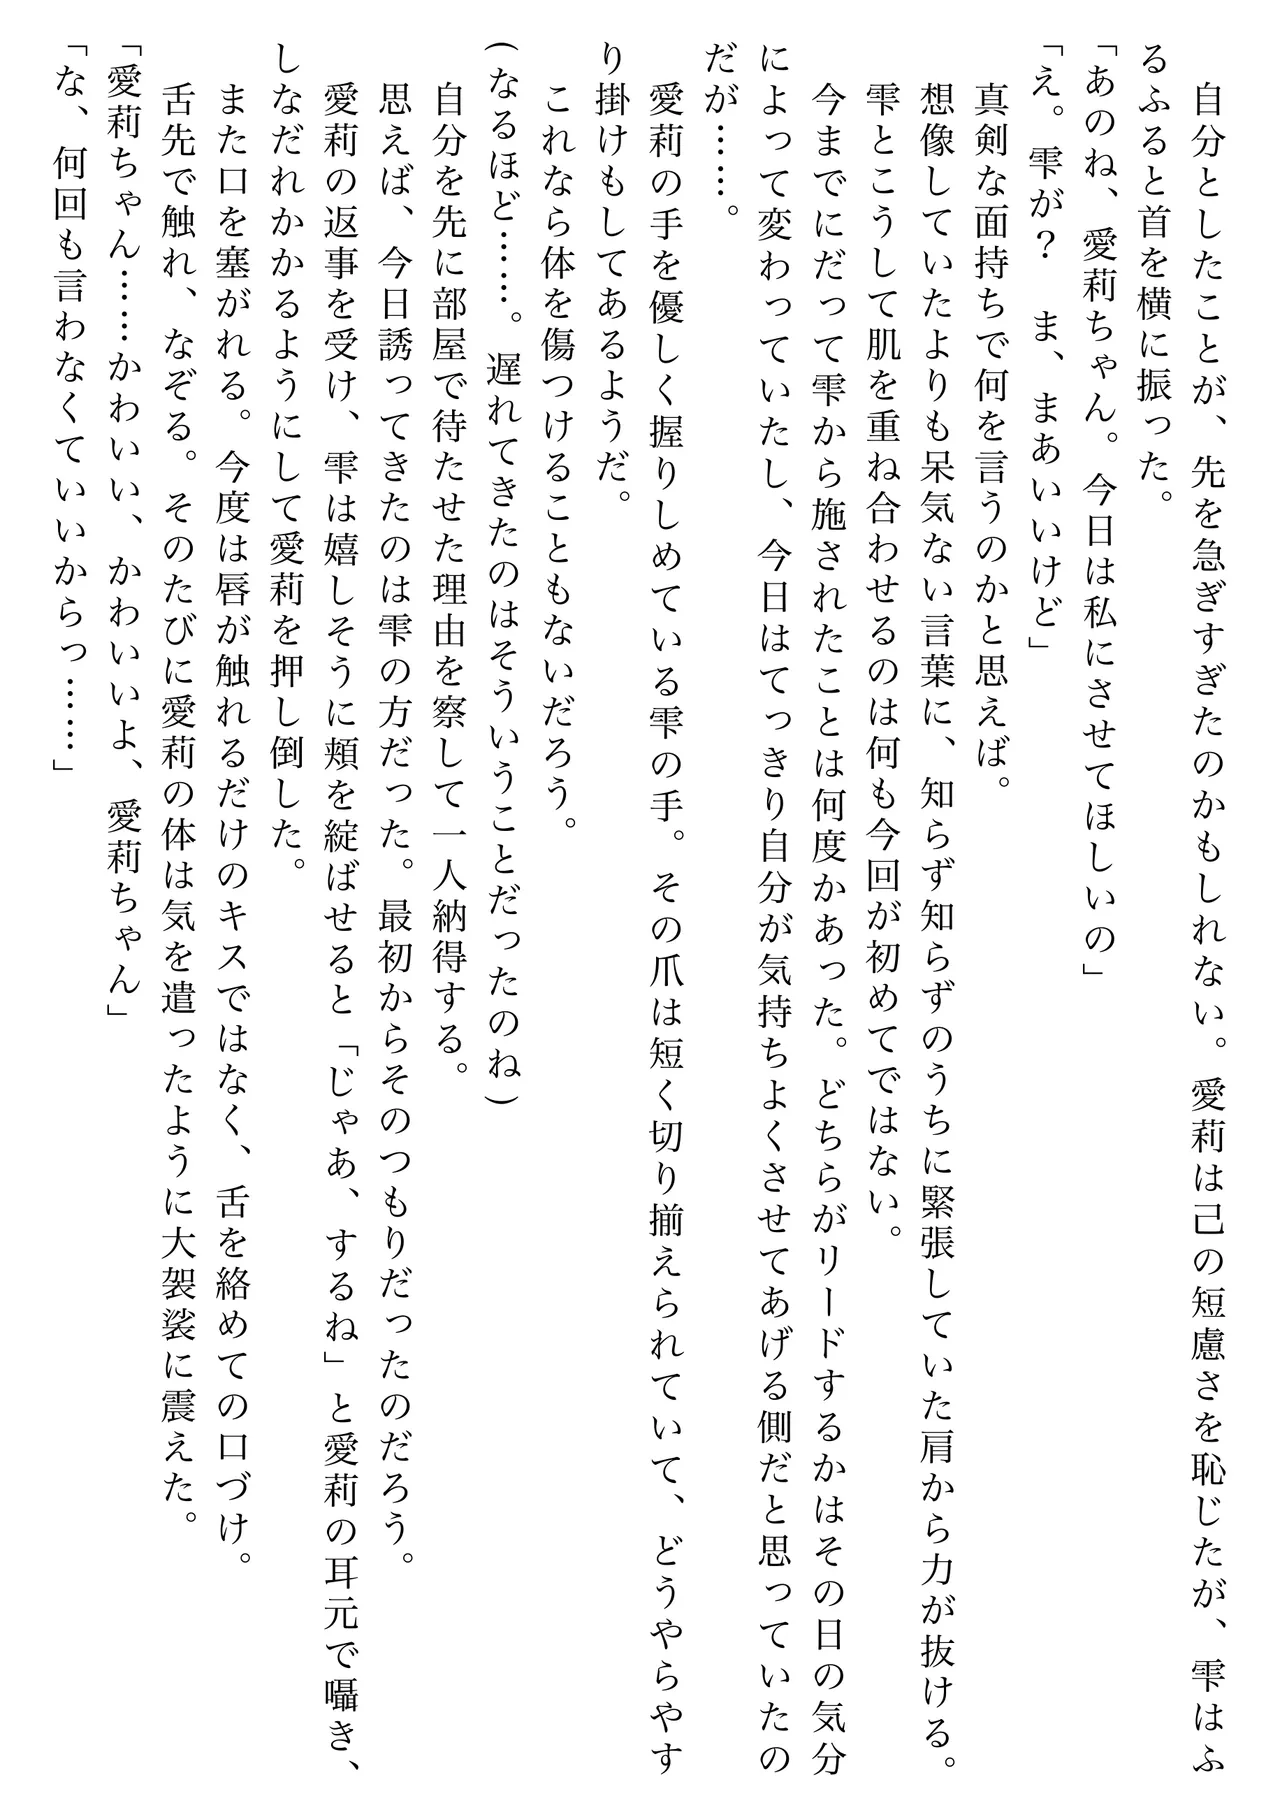 自分としたことが、先を急ぎすぎたのかもしれない。愛莉は己の短慮さを恥じたが、雫はふ
るふると首を横に振った。
「あのね、愛莉ちゃん。今日は私にさせてほしいの」
「え。雫が？　ま、まあいいけど」
　真剣な面持ちで何を言うのかと思えば。
　想像していたよりも呆気ない言葉に、知らず知らずのうちに緊張していた肩から力が抜ける。
　雫とこうして肌を重ね合わせるのは何も今回が初めてではない。
　今までにだって雫から施されたことは何度かあった。どちらがリードするかはその日の気分
によって変わっていたし、今日はてっきり自分が気持ちよくさせてあげる側だと思っていたの
だが……。
　愛莉の手を優しく握りしめている雫の手。その爪は短く切り揃えられていて、どうやらやす
り掛けもしてあるようだ。
　これなら体を傷つけることもないだろう。
(なるほど……。遅れてきたのはそういうことだったのね)
　自分を先に部屋で待たせた理由を察して一人納得する。
　思えば、今日誘ってきたのは雫の方だった。最初からそのつもりだったのだろう。
　愛莉の返事を受け、雫は嬉しそうに頬を綻ばせると「じゃあ、するね」と愛莉の耳元で囁き、
しなだれかかるようにして愛莉を押し倒した。
　また口を塞がれる。今度は唇が触れるだけのキスではなく、舌を絡めての口づけ。
　舌先で触れ、なぞる。そのたびに愛莉の体は気を遣ったように大袈裟に震えた。
「愛莉ちゃん……かわいい、かわいいよ、愛莉ちゃん」
「な、何回も言わなくていいからっ……」